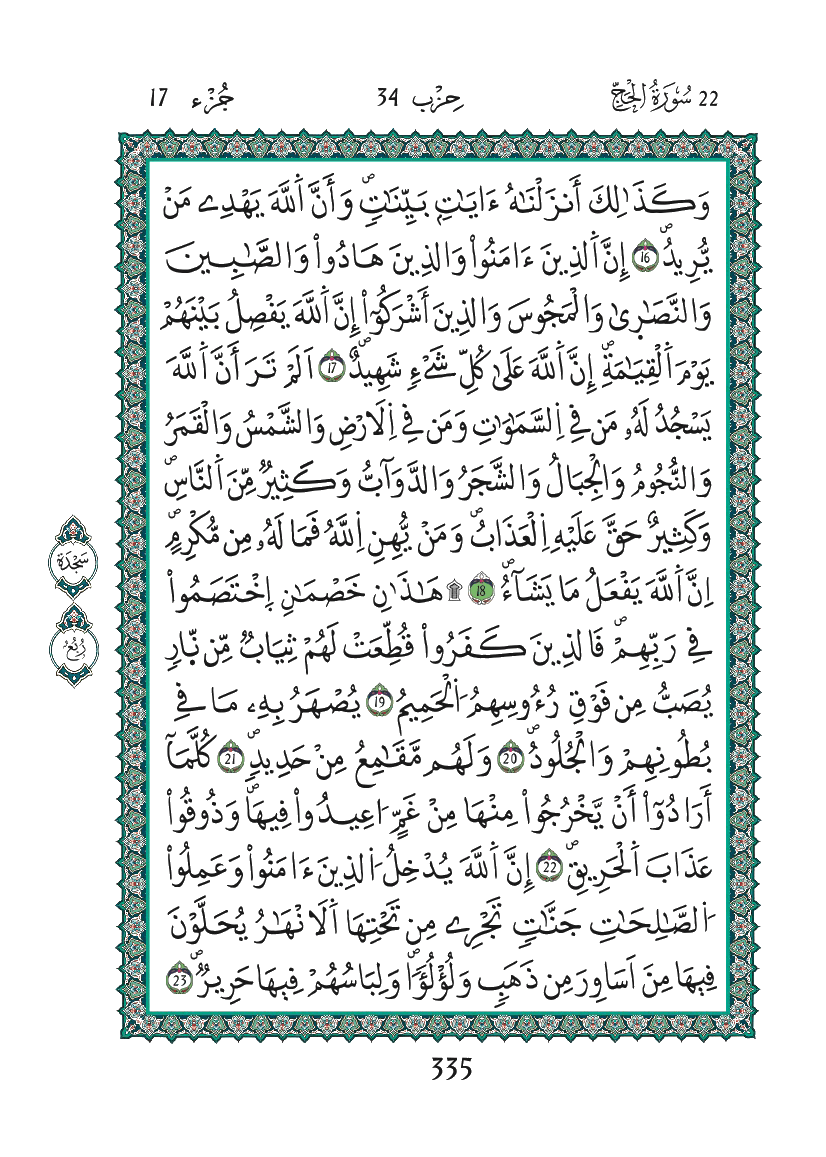 22 سُورَةُ الْحَجِّ
حِزْب 34
جُزْء 17
وَكَذَٰلِكَ أَنزَلْنَٰهُ ءَايَٰتِۢ بَيِّنَٰتٖۖ وَأَنَّ اَ۬للَّهَ يَهْدِے مَنْ
يُّرِيدُۖ 16 إِنَّ اَ۬لذِينَ ءَامَنُواْ وَالذِينَ هَادُواْ وَالصَّٰبِـِٕينَ
وَالنَّصَٰرٜىٰ وَالْمَجُوسَ وَالذِينَ أَشْرَكُوٓاْ إِنَّ اَ۬للَّهَ يَفْصِلُ بَيْنَهُمْ
يَوْمَ اَ۬لْقِيَٰمَةِۖ إِنَّ اَ۬للَّهَ عَلَىٰ كُلِّ شَےْءٖ شَهِيدٌۖ 17 اَلَمْ تَرَ أَنَّ اَ۬للَّهَ
يَسْجُدُ لَهُۥ مَن فِے اِ۬لسَّمَٰوَٰتِ وَمَن فِے اِ۬لَارْضِ وَالشَّمْسُ وَالْقَمَرُ
وَالنُّجُومُ وَالْجِبَالُ وَالشَّجَرُ وَالدَّوَآبُّ وَكَثِيرٞ مِّنَ اَ۬لنَّاسِۖ
وَكَثِيرٌ حَقَّ عَلَيْهِ اِ۬لْعَذَابُۖ وَمَنْ يُّهِنِ اِ۬للَّهُ فَمَا لَهُۥ مِن مُّكْرِمٍۖ
اِنَّ اَ۬للَّهَ يَفْعَلُ مَا يَشَآءُۖ ۩ 18 ۞ هَٰذَٰنِ خَصْمَٰنِ اِ۪خْتَصَمُواْ
فِے رَبِّهِمْۖ فَالذِينَ كَفَرُواْ قُطِّعَتْ لَهُمْ ثِيَابٞ مِّن نّ۪ارٖ
يُصَبُّ مِن فَوْقِ رُءُوسِهِمُ اُ۬لْحَمِيمُ 19 يُصْهَرُ بِهِۦ مَا فِے
بُطُونِهِمْ وَالْجُلُودُۖ 20 وَلَهُم مَّقَٰمِعُ مِنْ حَدِيدٖۖ 21 كُلَّمَآ
أَرَادُوٓاْ أَنْ يَّخْرُجُواْ مِنْهَا مِنْ غَمٍّ ا۟عِيدُواْ فِيهَاۖ وَذُوقُواْ
عَذَابَ اَ۬لْحَرِيقِۖ 22 إِنَّ اَ۬للَّهَ يُدْخِلُ اُ۬لذِينَ ءَامَنُواْ وَعَمِلُواْ
اُ۬لصَّٰلِحَٰتِ جَنَّٰتٖ تَجْرِے مِن تَحْتِهَا اَ۬لَانْهَٰرُ يُحَلَّوْنَ
فِيهَا مِنَ اَسَاوِرَ مِن ذَهَبٖ وَلُؤْلُؤاٗۖ وَلِبَاسُهُمْ فِيهَا حَرِيرٞۖ 23
سَجْدَة
رُبُع
335